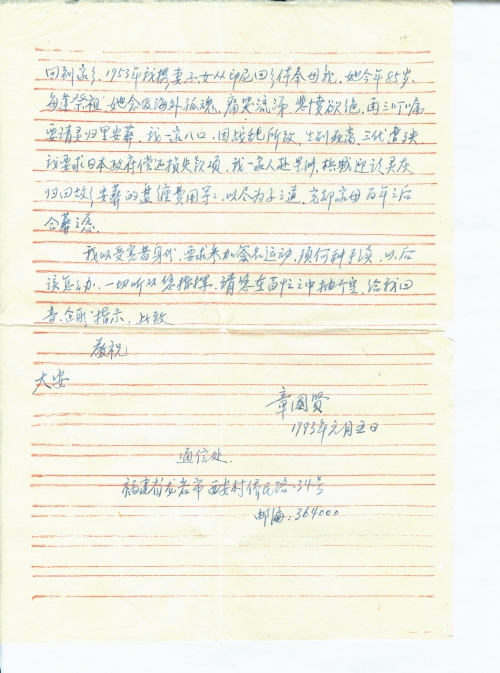 回到家乡，1953年我携妻子、女从印尼回乡侍奉母亲，她今年85岁，
每逢祭祖，她念及海外孤魂，痛哭流涕，悲愤欲绝，再三叮嘱
要请灵归里安葬，我一家八口，因战乱所致，生离死离，三代遭殃，
我要求日本政府偿还损失款项，我一家人赴星洲，槟城迎认灵灰
归回故乡安葬的盘缠费用等，以尽为子之道，完却家母百年之后
合葬之愿。
我以受害者身份，要求参加签名运动，须何种手续，以后
该怎么办，一切听从您指挥，请您在百忙之中抽个空，给我回
音、企盼指示，此致
敬祝
大安
章国贤
1993年元月五日
通信处
福建省龙岩市西安村侨民路34号
邮编：364000